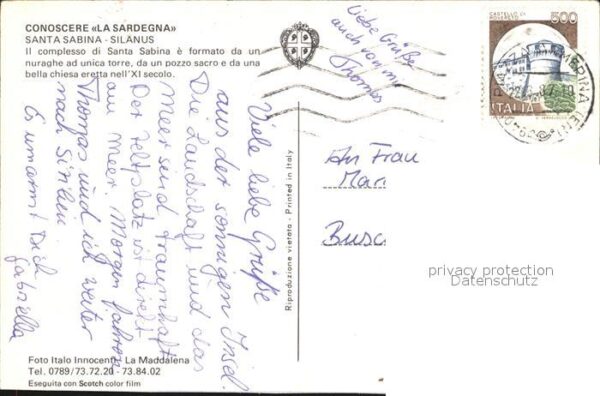 CONOSCERE «LA SARDEGNA»
SANTA SABINA - SILANUS
Il complesso di Santa Sabina è formato da un
nuraghe ad unica torre, da un pozzo sacro e da una
bella chiesa eretta nell'XI secolo.
Viele liebe Grüße
aus der sonnigen Insel.
Die Landschaft und das
Meer sind traumhaft
Der Zeltplatz ist direkt
am Meer. Morgen fahren
Thomas und ich weiter
nach Sizilien
Es umarmt Dich
Gabriella
Liebe Grüße
auch von mir
Thomas
Foto Italo Innocenti - La Maddalena
Tel. 0789/73.72.20 - 73.84.02
Eseguita con Scotch color film
Riproduzione vietata - Printed in Italy
CASTELLO DI
ROVERETO
500
ITALIA
An Frau
Mar
Busc
privacy protection
Datenschutz